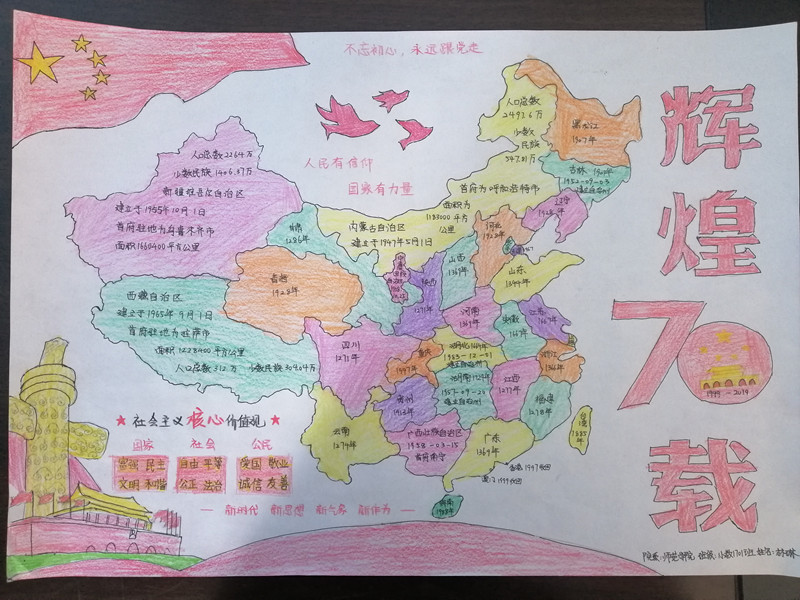 不忘初心，永远跟党走
辉煌
70
载
1949-2019
人民有信仰
国家有力量
人口总数2264万
少数民族1406.87万
新疆维吾尔自治区
建立于1955年10月1日
首府驻地为乌鲁木齐市
面积1660400平方公里
西藏自治区
建立于1965年9月1日
首府驻地为拉萨市
面积1228400平方公里
人口总数312万
人口总数
2493.6万
少数
民族
首府为呼和浩特市
面积为
1183000平方
公里
内蒙古自治区
建立于1947年5月1日
黑龙江
吉林
1952-09-03
辽宁
甘肃
1286年
青海
1928年
河北
1928年
山西
1369年
山东
陕西
河南
安徽
1667年
江苏
1667年
四川
重庆
1997年
1983-12-01
1957-09-20
江西
1277年
浙江
福建
1278年
贵州
1413年
云南
1274年
广西壮族自治区
1958-03-15
首府南宁
广东
1369年
台湾
1885年
香港1997回归
澳门1999回归
海南
1988年
★社会主义核心价值观★
国家 社会 公民
富强 民主 自由 平等 爱国 敬业
文明 和谐 公正 法治 诚信 友善
— 新时代 新思想 新气象 新作为 —